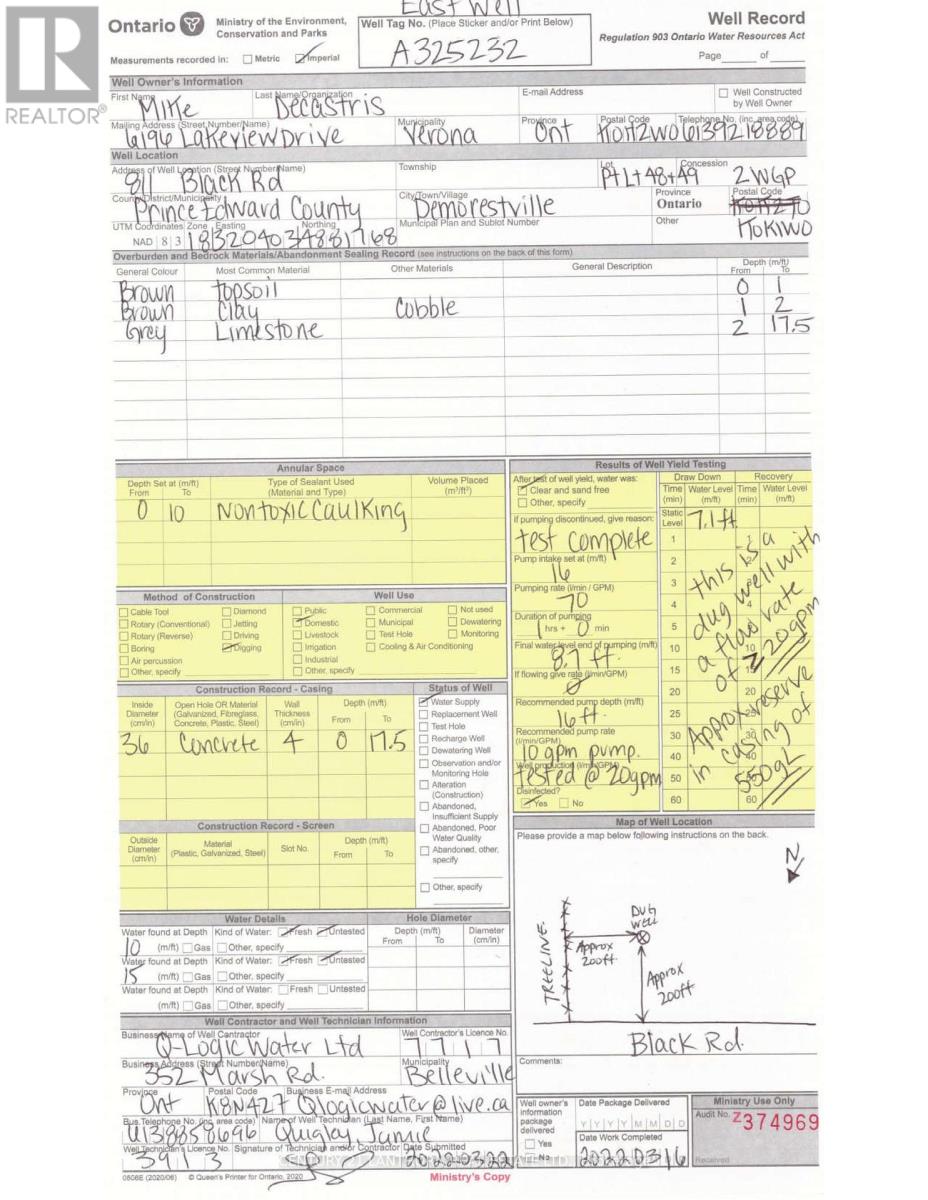 East Well
REALTOR®
Ontario
Ministry of the Environment,
Conservation and Parks
Well Tag No. (Place Sticker and/or Print Below)
A325232
Well Record
Regulation 903 Ontario Water Resources Act
Measurements recorded in: Metric Imperial
Page of
Well Owner's Information
First Name Last Name/Organization E-mail Address Well Constructed by Well Owner
Mike Decastris
Mailing Address (Street Number/Name) Municipality Province Postal Code Telephone No. (inc. area code)
6196 Lakeview Drive Verona Ont K0H2W0 6139218889
Well Location
Address of Well Location (Street Number/Name) Township Lot Concession
811 Black Rd Pt Lt 48+49 2WGP
County/District/Municipality City/Town/Village Province Postal Code
Prince Edward County Demorestville Ontario
UTM Coordinates Zone Easting Northing Municipal Plan and Sublot Number Other K0K1W0
NAD 83 183204034881768
Overburden and Bedrock Materials/Abandonment Sealing Record (see instructions on the back of this form)
General Colour Most Common Material Other Materials General Description Depth (m/ft) From To
Brown topsoil 0 1
Brown Clay Cobble 1 2
Grey Limestone 2 17.5
Annular Space
Depth Set at (m/ft) From To Type of Sealant Used (Material and Type) Volume Placed (m³/ft³)
0 10 Nontoxic Caulking
Method of Construction
Cable Tool Diamond
Rotary (Conventional) Jetting
Rotary (Reverse) Driving
Boring Digging
Air percussion
Other, specify
Well Use
Public Commercial Not used
Domestic Municipal Dewatering
Livestock Test Hole Monitoring
Irrigation Cooling & Air Conditioning
Industrial
Other, specify
Construction Record - Casing
Inside Diameter (cm/in) Open Hole OR Material (Galvanized, Fibreglass, Concrete, Plastic, Steel) Wall Thickness (cm/in) Depth (m/ft) From To
36 Concrete 4 0 17.5
Status of Well
Water Supply
Replacement Well
Test Hole
Recharge Well
Dewatering Well
Observation and/or Monitoring Hole
Alteration (Construction)
Abandoned, Insufficient Supply
Abandoned, Poor Water Quality
Abandoned, other, specify
Other, specify
Construction Record - Screen
Outside Diameter (cm/in) Material (Plastic, Galvanized, Steel) Slot No. Depth (m/ft) From To
Water Details
Water found at Depth Kind of Water: Fresh Untested
10 (m/ft) Gas Other, specify
Water found at Depth Kind of Water: Fresh Untested
15 (m/ft) Gas Other, specify
Water found at Depth Kind of Water: Fresh Untested
(m/ft) Gas Other, specify
Hole Diameter
Depth (m/ft) From To Diameter (cm/in)
Well Contractor and Well Technician Information
Business Name of Well Contractor Well Contractor's Licence No.
Q-Logic Water Ltd 7717
Business Address (Street Number/Name) Municipality
352 Marsh Rd. Belleville
Province Postal Code Business E-mail Address
Ont K8N4Z7 Qlogicwater@live.ca
Bus.Telephone No. (inc. area code) Name of Well Technician (Last Name, First Name)
6138858696 Quigley, Jamie
Well Technician's Licence No. Signature of Technician and/or Contractor Date Submitted
3913 20220322
0506E (2020/06) © Queen's Printer for Ontario, 2020
Ministry's Copy
Results of Well Yield Testing
After test of well yield, water was:
Clear and sand free
Other, specify
If pumping discontinued, give reason:
test complete
Pump intake set at (m/ft)
16
Pumping rate (l/min / GPM)
70
Duration of pumping
1 hrs + 0 min
Final water level end of pumping (m/ft)
8.7 ft.
If flowing give rate (l/min/GPM)
0
Recommended pump depth (m/ft)
16 ft.
Recommended pump rate (l/min/GPM)
10 gpm pump.
Well production (l/min/GPM)
tested @ 20gpm
Disinfected?
Yes No
Draw Down Recovery
Time (min) Water Level (m/ft) Time (min) Water Level (m/ft)
Static Level 7.1ft
1 1
2 2
3
4 4
5
10 10
15 15
20 20
25 25
30 30
40 40
50
60 60
this is a
dug well with
a flow rate
of 20gpm
Approx reserve
in casing of
550gL
Map of Well Location
Please provide a map below following instructions on the back.
N
DUG
WELL
TREELINE
Approx
200ft
Approx
200ft
Black Rd.
Comments:
Well owner's information package delivered
Yes
No
Date Package Delivered
YYYYMMDD
Date Work Completed
20220316
Ministry Use Only
Audit No. Z374969
Received